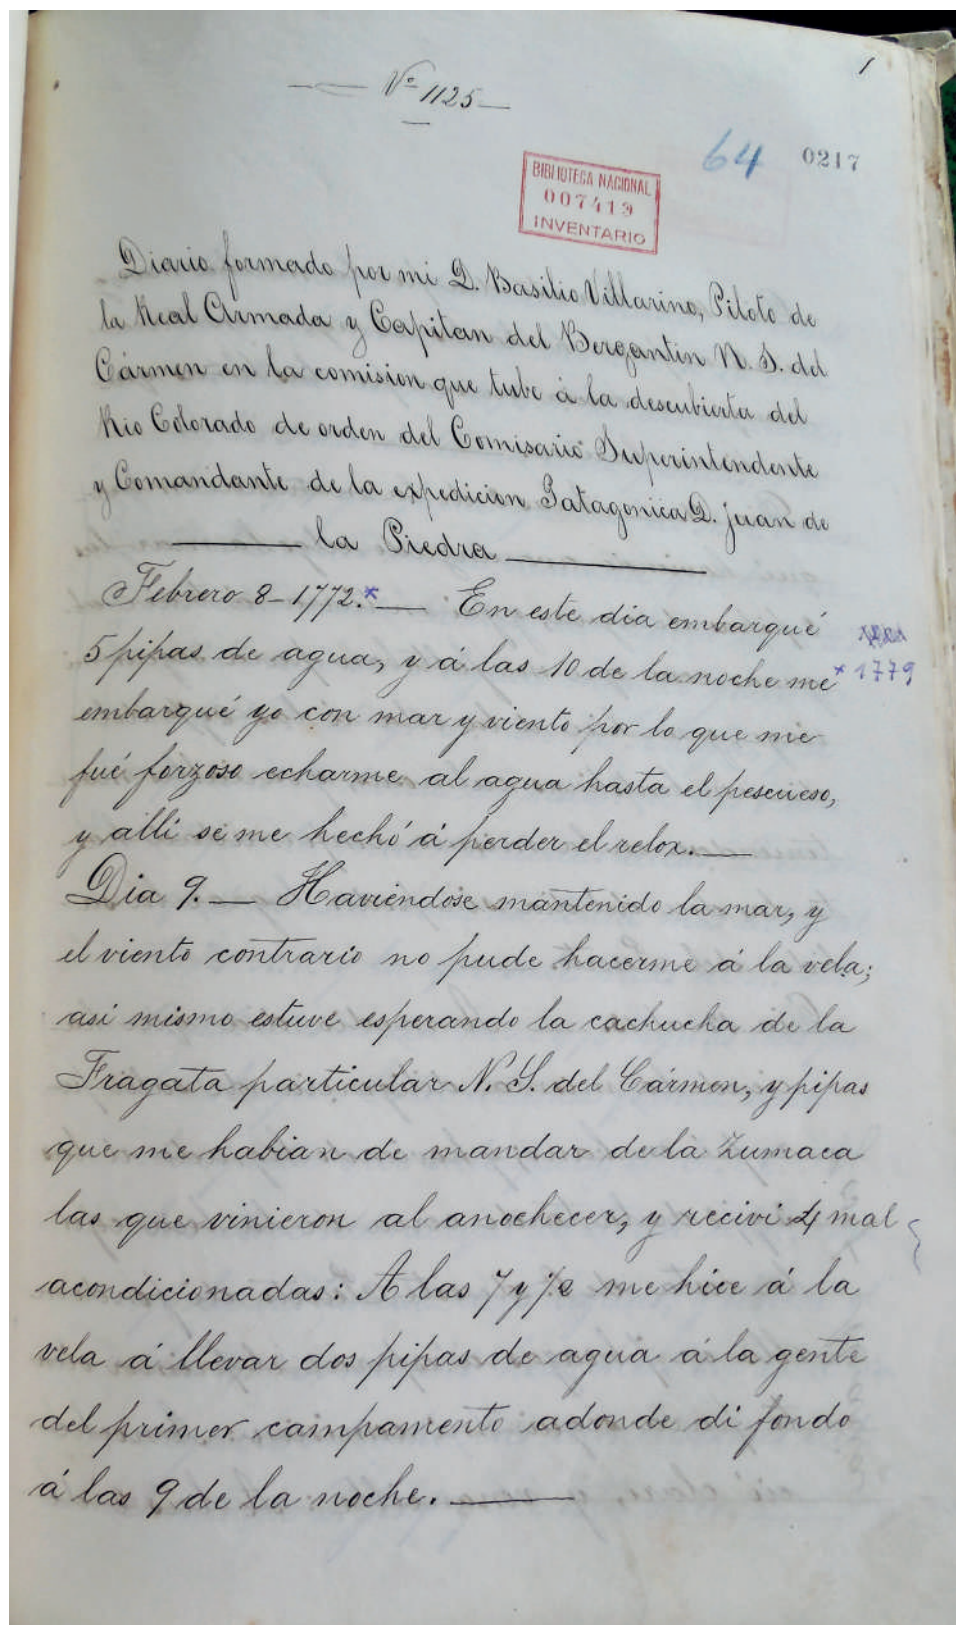 1
Nº 1125
64 0217
BIBLIOTECA NACIONAL
007419
INVENTARIO
Diario formado por mi D. Basilio Villarino, Piloto de
la Real Armada y Capitan del Bergantin N. S. del
Cármen en la comision que tube á la descubierta del
Rio Colorado de orden del Comisario Superintendente
y Comandante de la expedicion Patagonica D. Juan de
la Piedra
Febrero 8-1772.* — En este dia embarqué
5 pipas de agua, y á las 10 de la noche me
* 1779
embarqué yo con mar y viento por lo que me
fué forzoso echarme al agua hasta el pescueso,
y alli se me hechó á perder el relox. —
Dia 9. — Haviéndose mantenido la mar, y
el viento contrario no pude hacerme á la vela;
asi mismo estuve esperando la cachucha de la
Fragata particular N. S. del Cármen, y pipas
que me habian de mandar de la Zumaca
las que vinieron al anochecer, y recivi 4 mal
acondicionadas: A las 7 y 1/2 me hice á la
vela á llevar dos pipas de agua á la gente
del primer campamento adonde di fondo
á las 9 de la noche. —